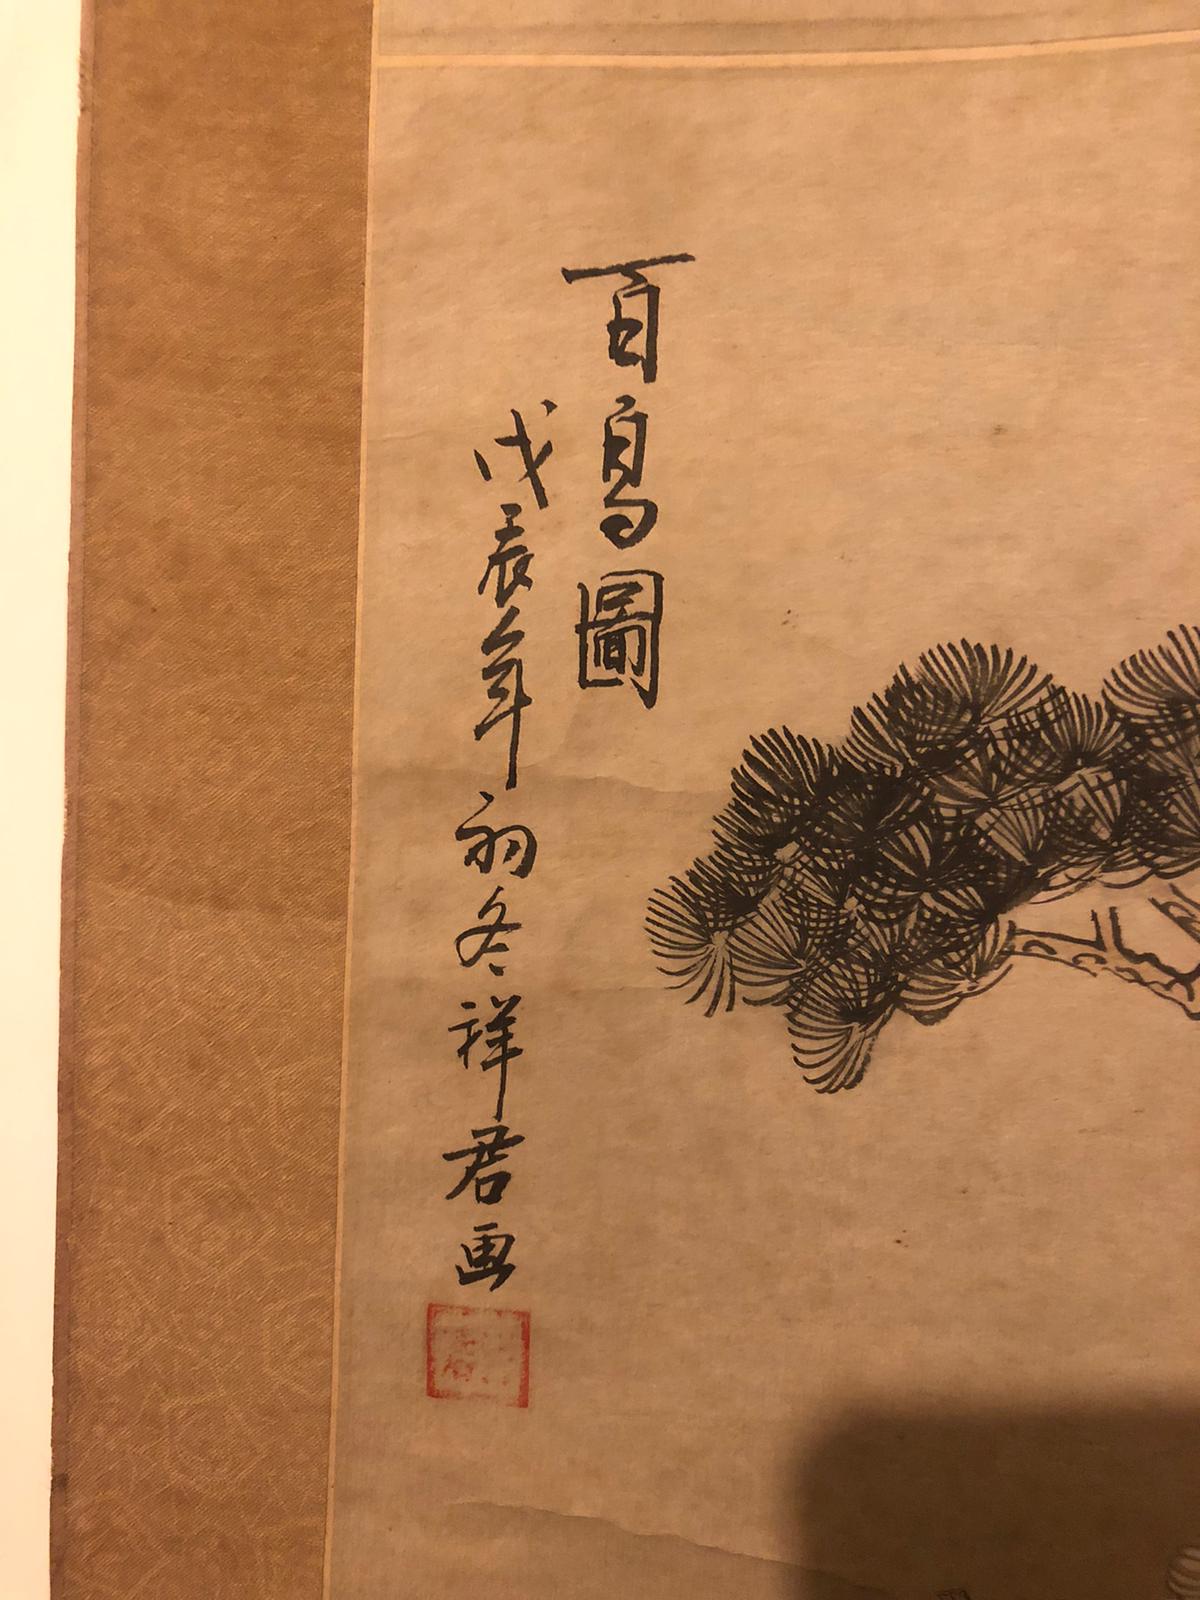 百鳥圖
戊辰年初冬祥君画